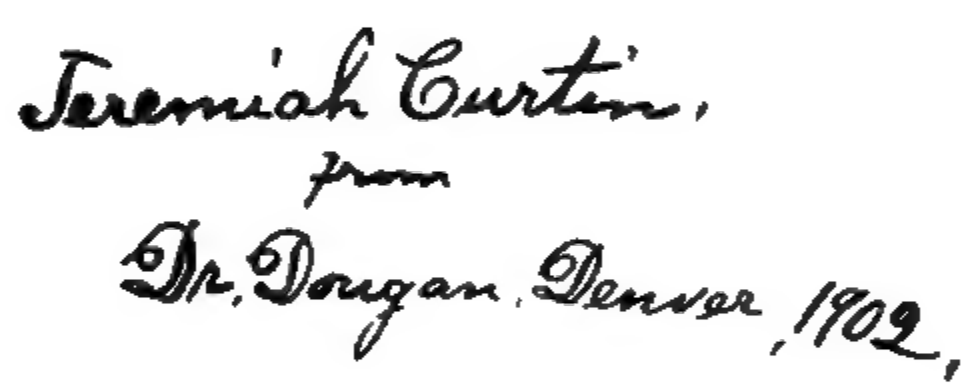 Jeremiah Curtin.
from
Dr. Dougan. Denver, 1902.